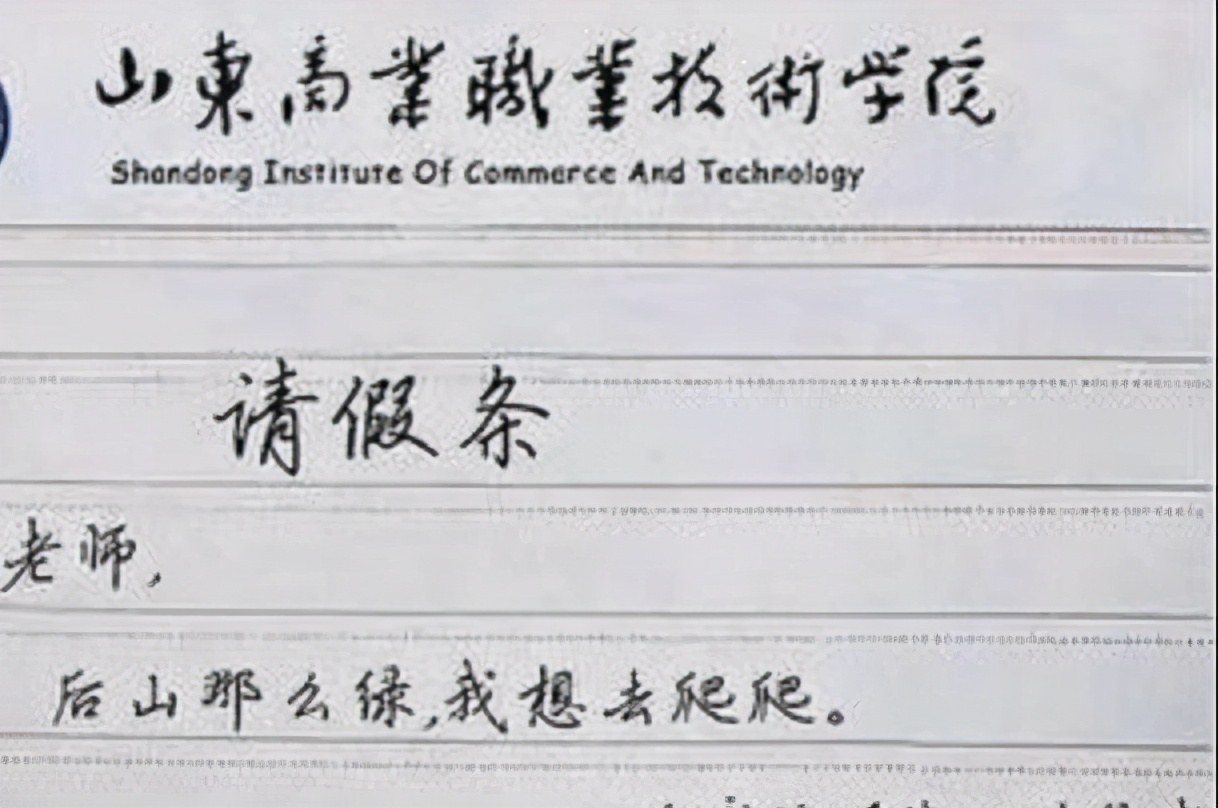 山東商業職業技術学院
Shandong Institute Of Commerce And Technology
请假条
老师,
后山那么绿,我想去爬爬。